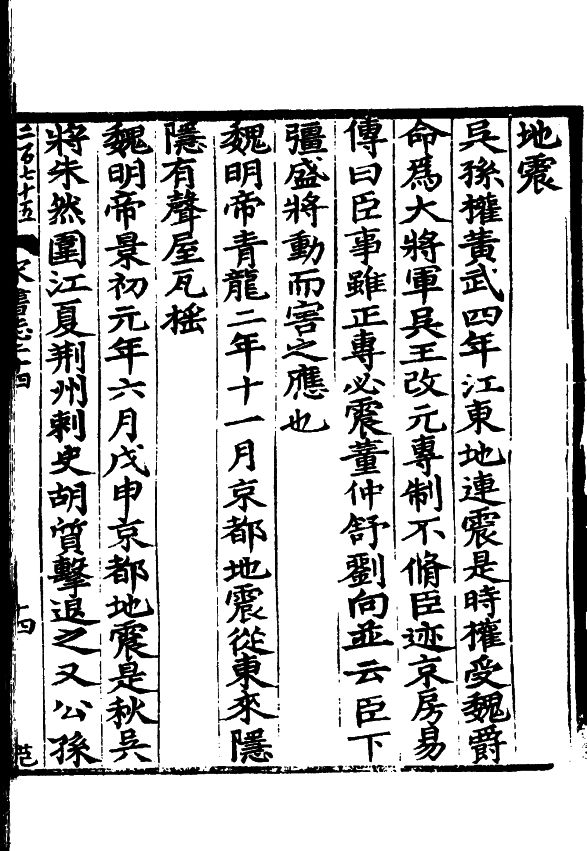 地震
吳孫權黃武四年江東地連震是時權受魏爵
命爲大將軍吳王改元專制不脩臣迹京房易
傳曰臣事雖正專必震董仲舒劉向並云臣下
彊盛將動而害之應也
魏明帝青龍二年十一月京都地震從東來隱
隱有聲屋瓦揺
魏明帝景初元年六月戊申京都地震是秋吳
將朱然圍江夏荆州刺史胡質擊退之又公孫
二百七十五 宋書志二十四 十四 范